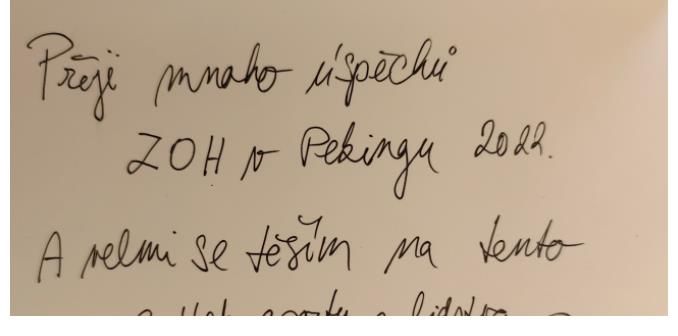 Přeji mnoho úspěchů
ZOH v Pekingu 2022.
A velmi se těším na tento
sportu a lidstva